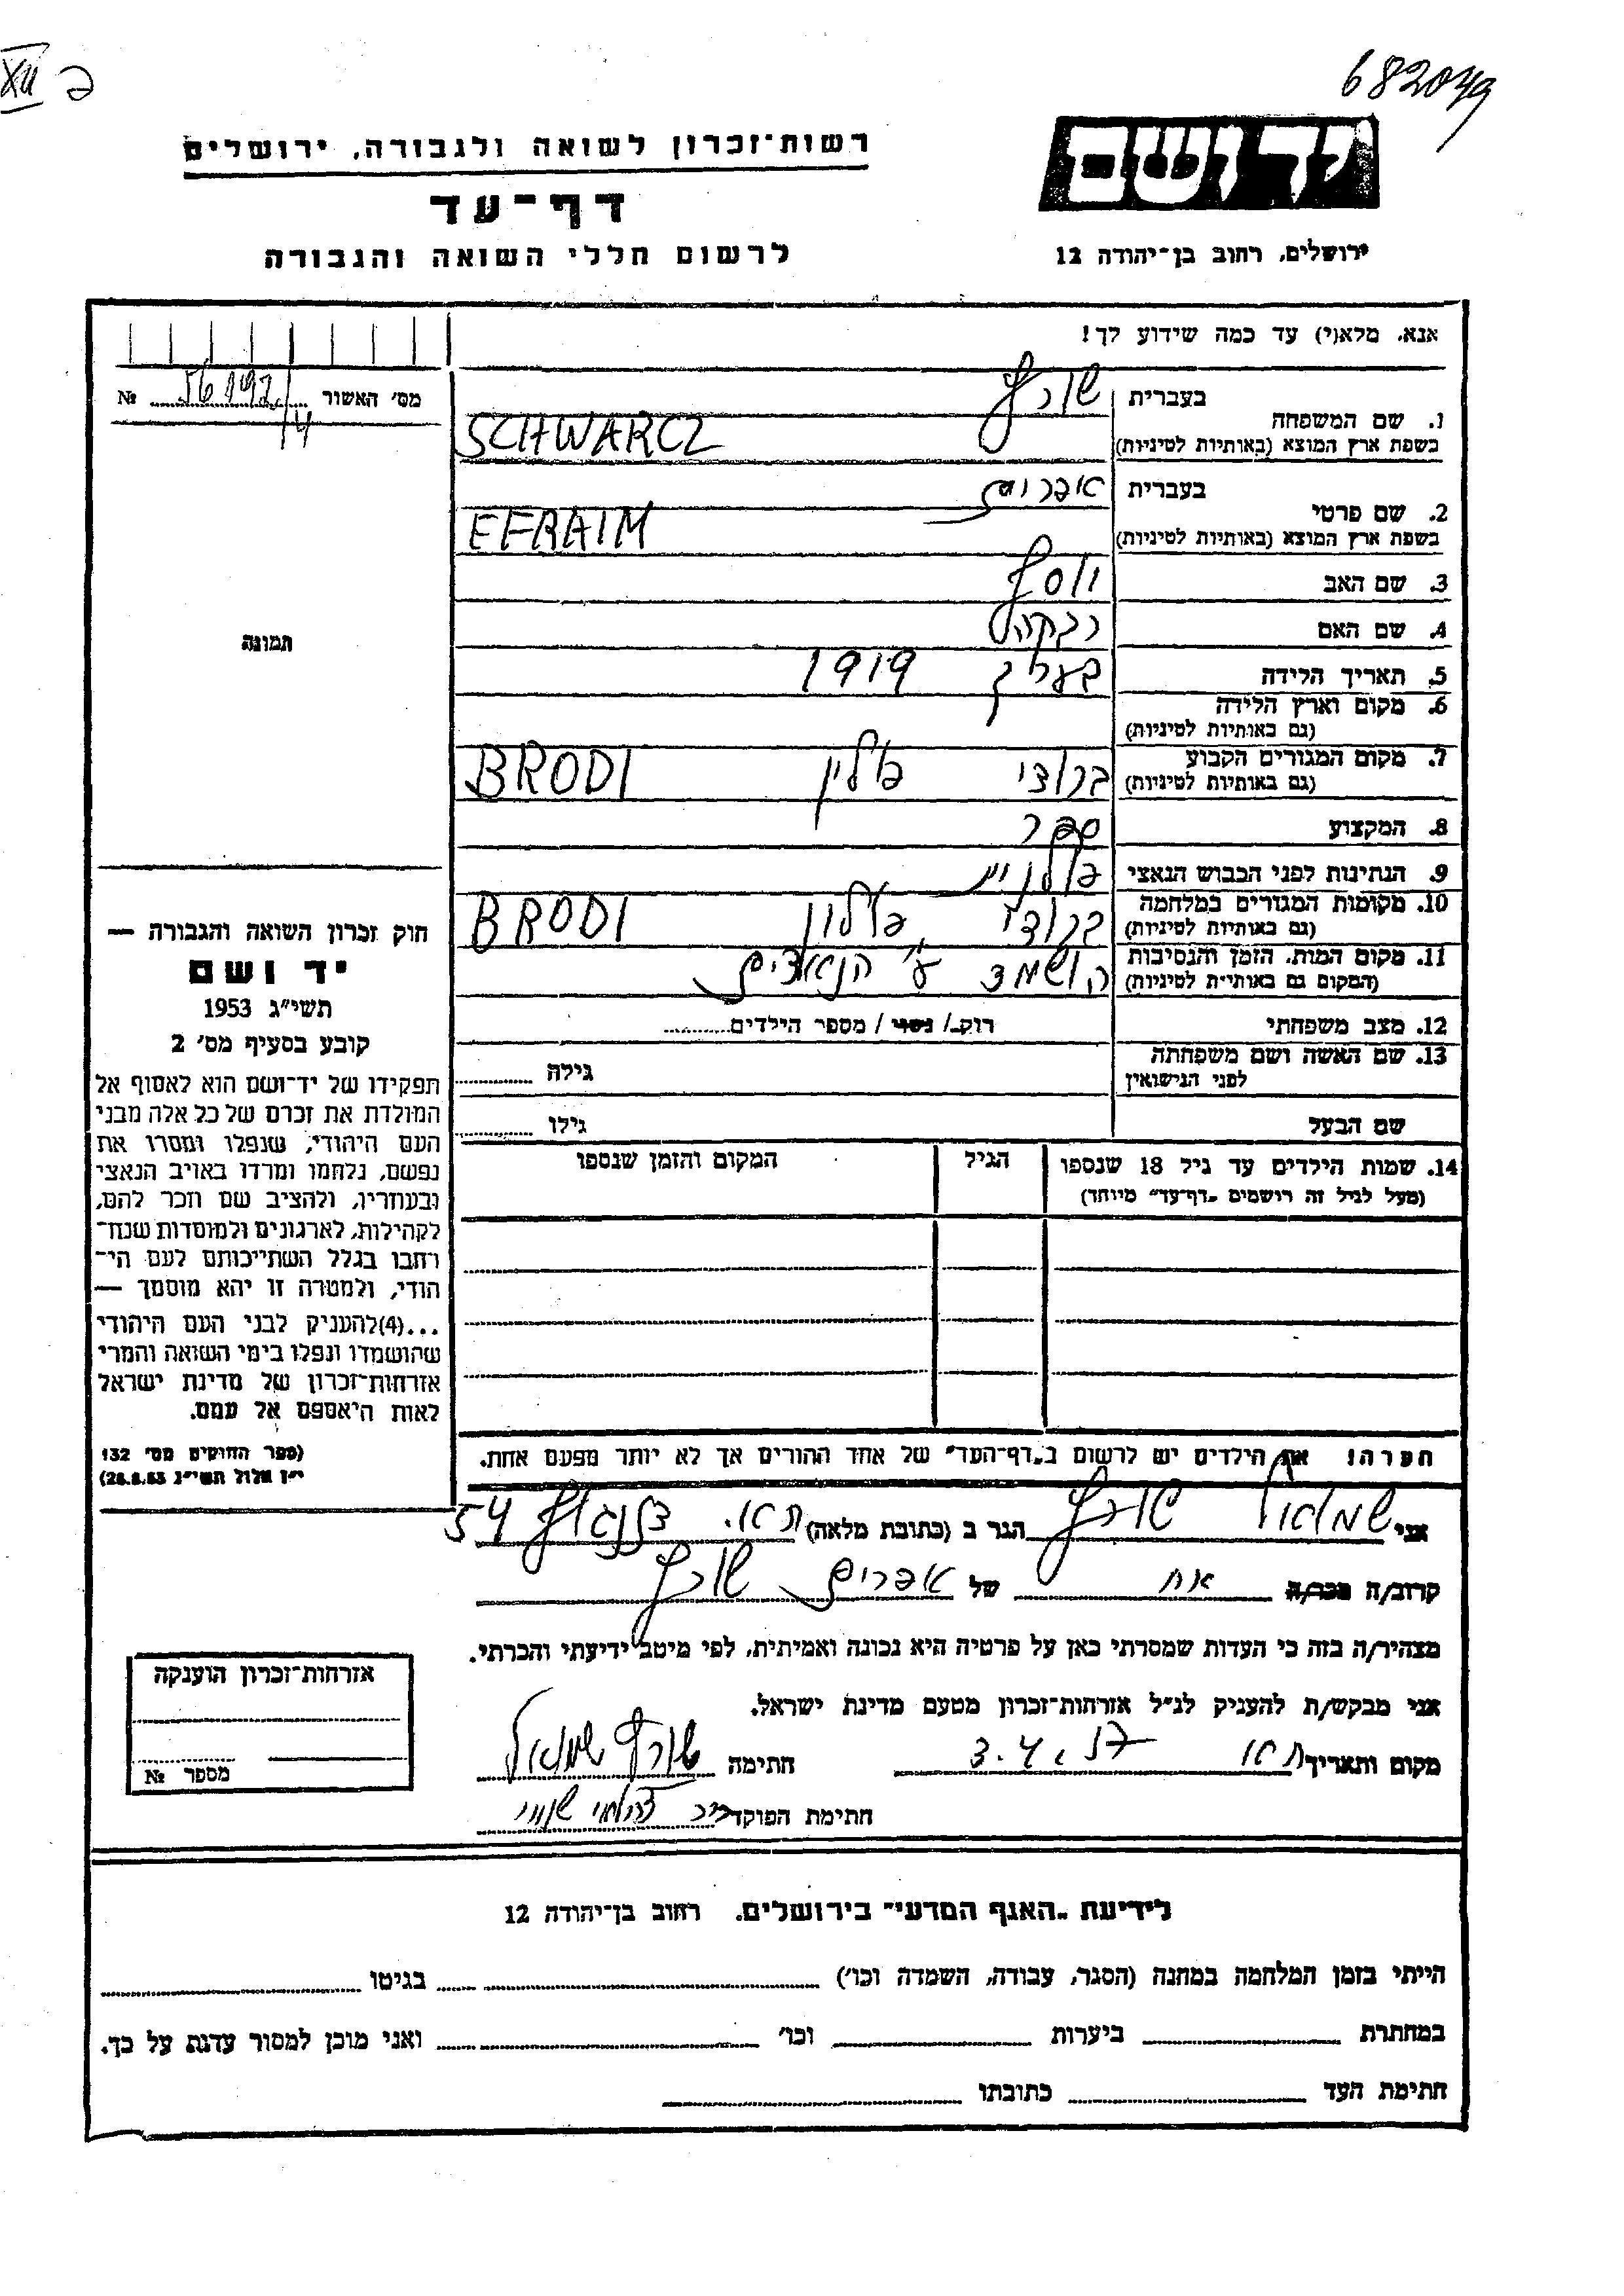 682049
XII
רשות־זכרון לשואה ולגבורה, ירושלים
יד ושם
דף־עד
ירושלים, רחוב בן־יהודה 12
לרשום חללי השואה והגבורה
אנא, מלא(י) עד כמה שידוע לך!
מס' האשור 56192/14 №
1. שם המשפחה
בעברית שורץ
בשפת ארץ המוצא (באותיות לטיניות) SCHWARCZ
2. שם פרטי
בעברית אפרים
בשפת ארץ המוצא (באותיות לטיניות) EFRAIM
3. שם האב יוסף
4. שם האם רבקה
תמונה
5. תאריך הלידה בערך 1919
6. מקום וארץ הלידה
(גם באותיות לטיניות)
7. מקום המגורים הקבוע
(גם באותיות לטיניות) ברודי פולין BRODI
8. המקצוע ספר
9. הנתינות לפני הכבוש הנאצי פולנית
10. מקומות המגורים במלחמה
(גם באותיות לטיניות) ברודי פולין BRODI
11. מקום המות, הזמן והנסיבות
(המקום גם באותיות לטיניות) הושמד ע"י הנאצים
12. מצב משפחתי רוק / נשוי / מספר הילדים
13. שם האשה ושם משפחתה
לפני הנישואין גילה
שם הבעל גילו
14. שמות הילדים עד גיל 18 שנספו
(מעל לגיל זה רושמים "דף־עד" מיוחד)
הגיל
המקום והזמן שנספו
חוק זכרון השואה והגבורה —
יד ושם
תשי"ג 1953
קובע בסעיף מס' 2
תפקידו של יד־ושם הוא לאסוף אל
המולדת את זכרם של כל אלה מבני
העם היהודי, שנפלו ומסרו את
נפשם, נלחמו ומרדו באויב הנאצי
ובעוזריו, ולהציב שם וזכר להם,
לקהילות, לארגונים ולמוסדות שנח־
רבו בגלל השתייכותם לעם הי־
הודי, ולמטרה זו יהא מוסמך —
...(4) להעניק לבני העם היהודי
שהושמדו ונפלו בימי השואה והמרי
אזרחות־זכרון של מדינת ישראל
לאות היאספם אל עמם.
(ספר החוקים מס' 132
י"ז אלול תשי"ג 28.8.53)
הערה! את הילדים יש לרשום ב"דף־העד" של אחד ההורים אך לא יותר מפעם אחת.
אני שמואל שורץ הגר ב (כתובת מלאה) ת"א. דיזנגוף 54
קרוב/ה מכר/ה אח של אפרים שורץ
מצהיר/ה בזה כי העדות שמסרתי כאן על פרטיה היא נכונה ואמיתית, לפי מיטב ידיעתי והכרתי.
אני מבקש/ת להעניק לנ"ל אזרחות־זכרון מטעם מדינת ישראל.
מקום ותאריך ת"א 3.4.57 חתימה שורץ שמואל
חתימת הפוקד
אזרחות־זכרון הוענקה
מספר №
לידיעת "האגף המדעי" בירושלים, רחוב בן־יהודה 12
הייתי בזמן המלחמה במחנה (הסגר, עבודה, השמדה וכו') בגיטו
במחתרת ביערות וכו' ואני מוכן למסור עדות על כך.
חתימת העד כתובתו